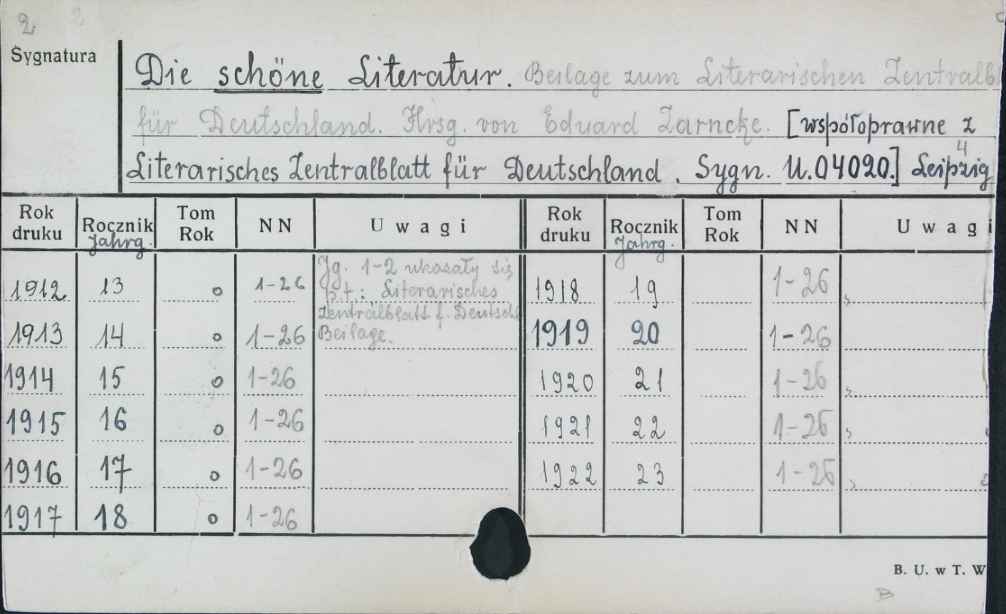 2 2
Sygnatura
Die schöne Literatur. Beilage zum Literarischen Zentralb
für Deutschland. Hrsg. von Eduard Zarncke. [współoprawne z
Literarisches Zentralblatt für Deutschland. Sygn. U.04020.4] Leipzig
Rok druku Rocznik Jahrg. Tom Rok NN Uwagi Rok druku Rocznik Jahrg. Tom Rok NN Uwagi
1912 13 o 1-26 Jg. 1-2 ukazały się 1918 19 1-26
p.t.: Literarisches
Zentralblatt f. Deutsch
1913 14 o 1-26 Beilage. 1919 20 1-26
1914 15 o 1-26 1920 21 1-26
1915 16 o 1-26 1921 22 1-26
1916 17 o 1-26 1922 23 1-26
1917 18 o 1-26
B. U. w T. W
B